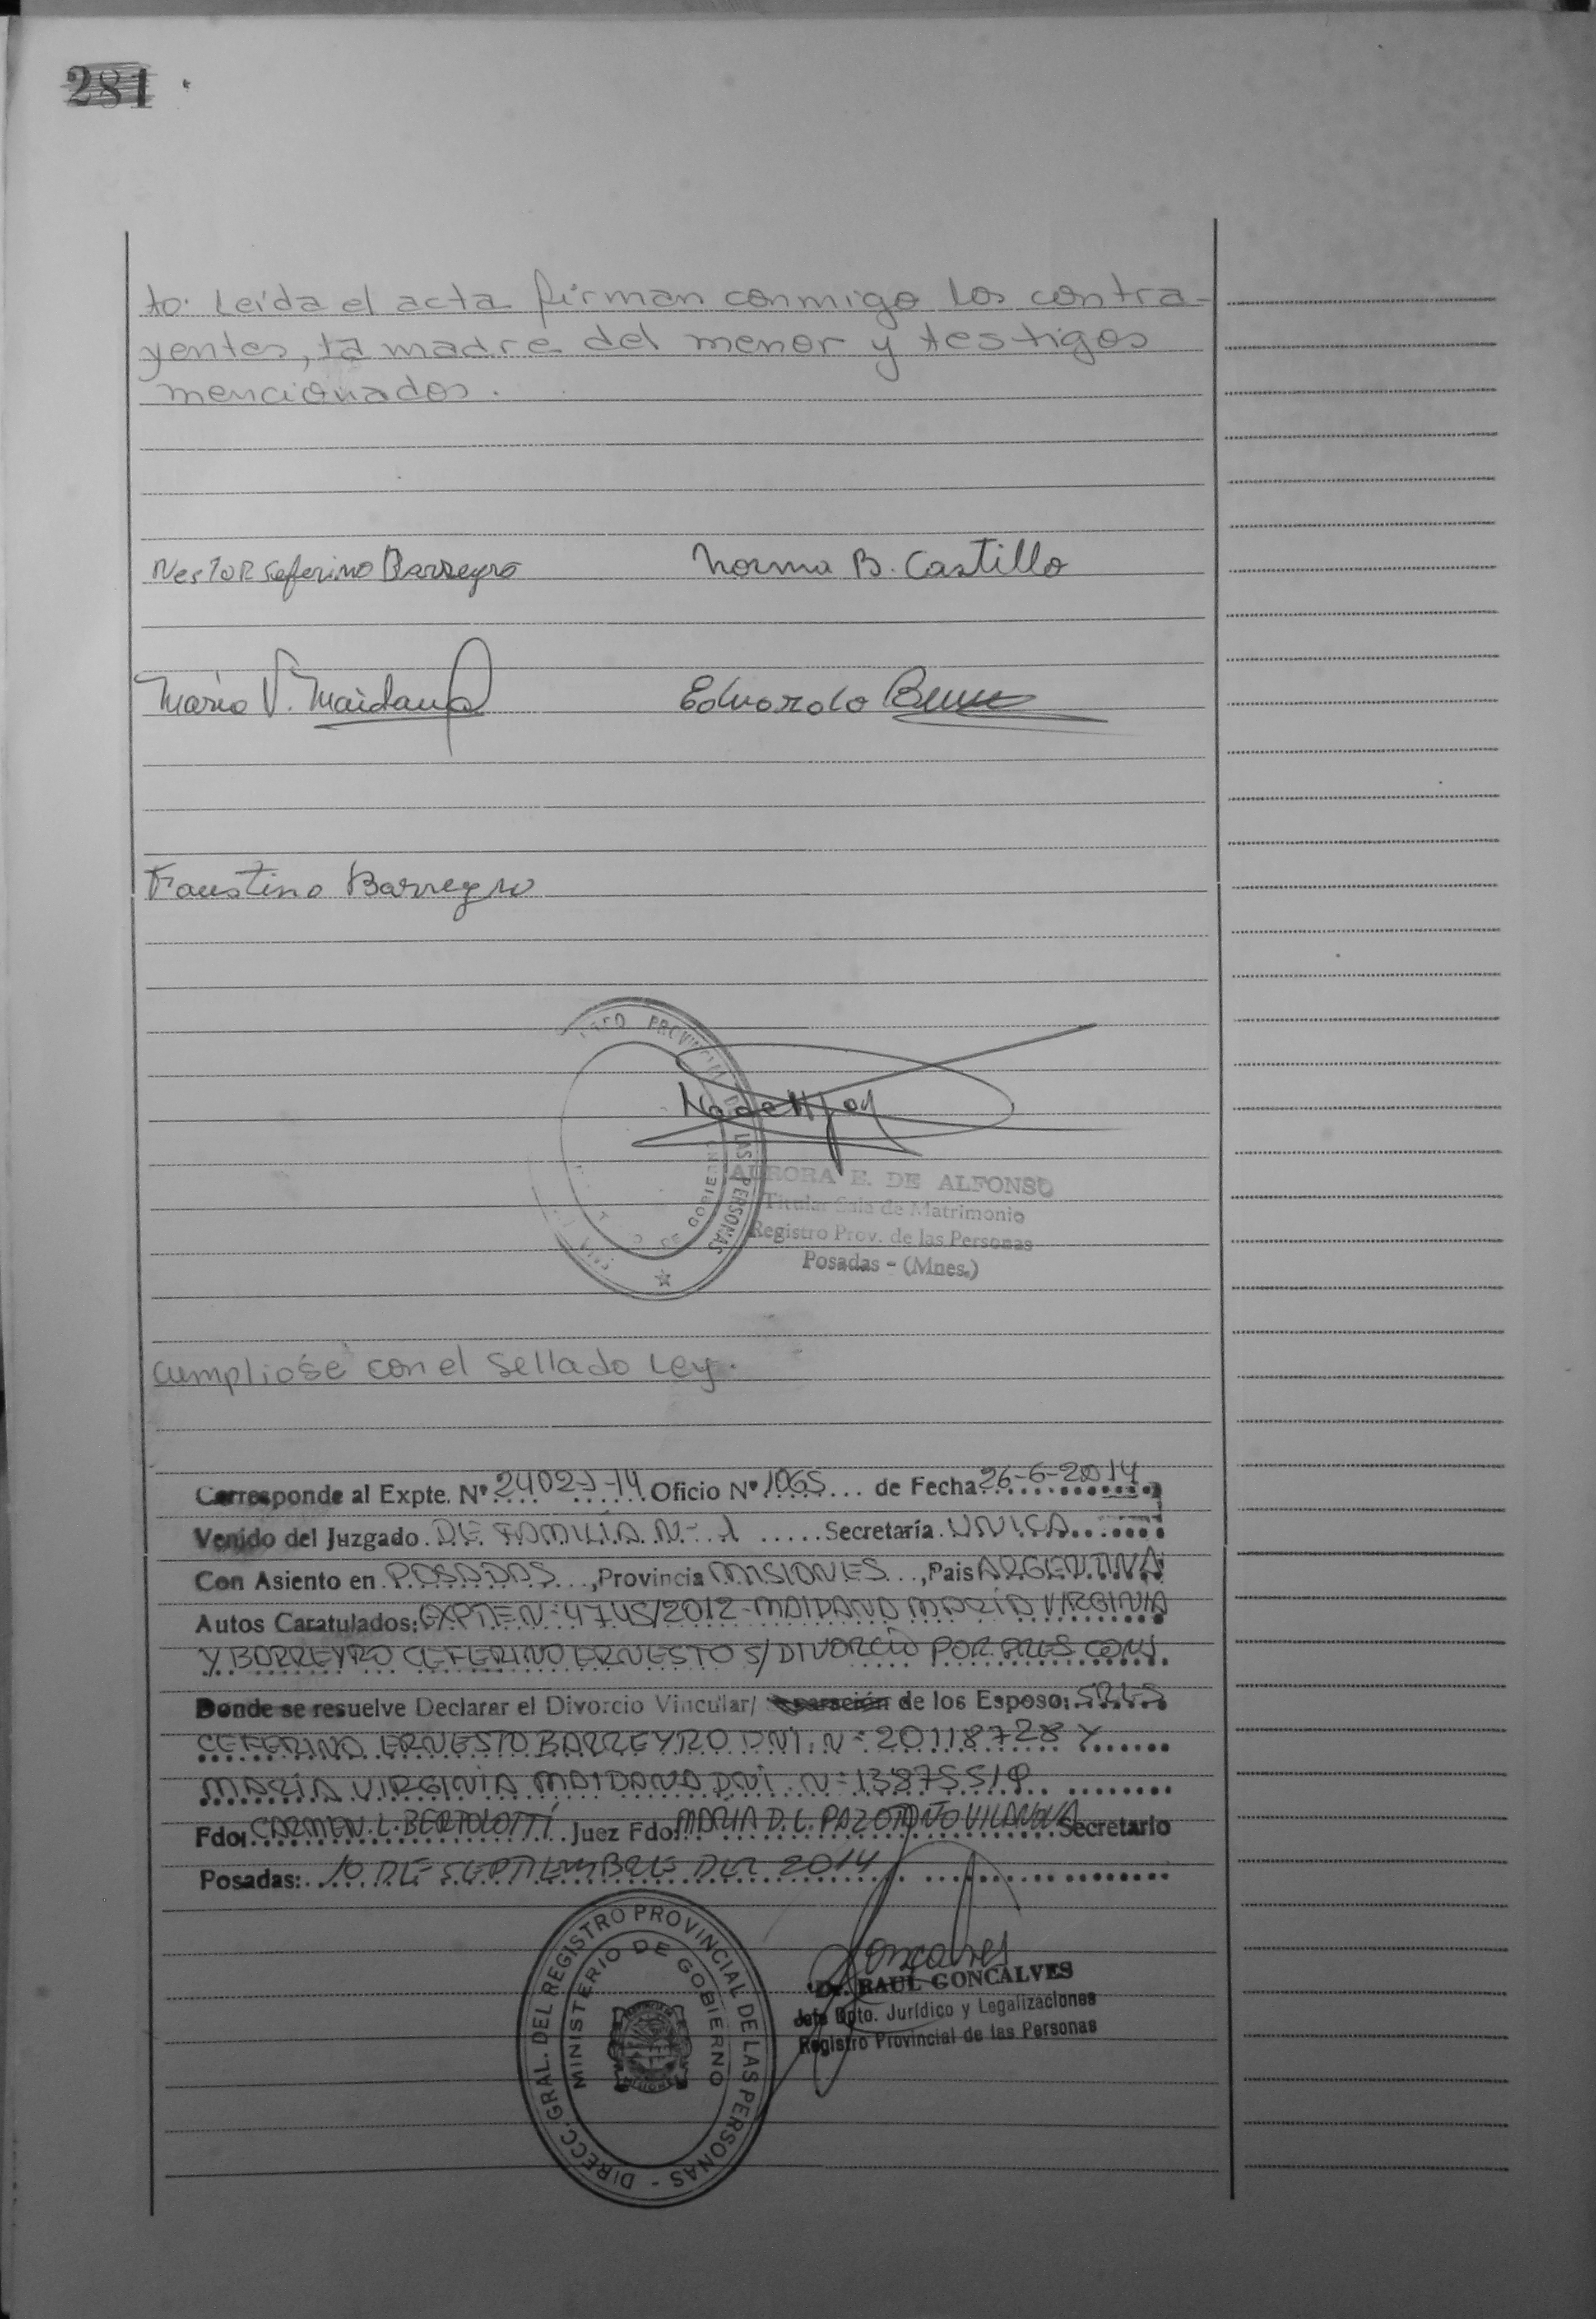 281
to. Leída el acta firman conmigo los contra-
yentes, la madre del menor y testigos
mencionados.
Norma B. Castillo
María V. Maidana
Eduardo
Faustino Barreyro
PROVINCIAL DE LAS PERSONAS
DE GOBIE
AURORA E. DE ALFONSO
Titular Sala de Matrimonio
Registro Prov. de las Personas
Posadas - (Mnes.)
Cumplióse con el Sellado Ley.
Corresponde al Expte. Nº 2402-J-14 Oficio Nº 1065 de Fecha 26-6-2014
Venido del Juzgado DE FAMILIA N- 1 Secretaría UNICA
Con Asiento en POSADAS, Provincia MISIONES, Pais ARGENTINA
Autos Caratulados: EXPTE N- 4745/2012 - MAIDANA MARÍA VIRGINIA
Y BARREYRO CEFERINO ERNESTO S/ DIVORCIO POR PRES CONJ.
Donde se resuelve Declarar el Divorcio Vincular/ Separación de los Esposo: SRES
CEFERINO ERNESTO BARREYRO DNI. N= 20118728 Y
MARÍA VIRGINIA MAIDANA DNI. N=
Fdo: CARMEN. L. BERTOLOTTI Juez Fdo: MARIA D. L. VILANOVA Secretario
Posadas: 10 DE SEPTIEMBRE DEL 2014
DIRECC. GRAL. DEL REGISTRO PROVINCIAL DE LAS PERSONAS -
MINISTERIO DE GOBIERNO
Goncalves
Dr. RAUL GONCALVES
Jefe Dpto. Jurídico y Legalizaciones
Registro Provincial de las Personas